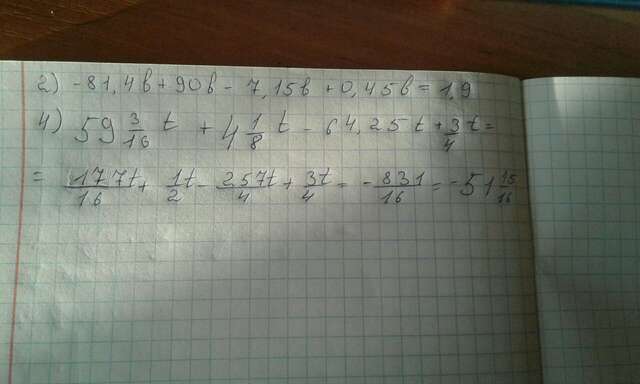 2) -81,4в + 90в - 7,15в + 0,45в = 1,9
4) 59 3/16 t + 4 1/8 t - 64,25t + 3/4 t =
= 177t/16 + 1t/2 - 257t/4 + 3t/4 = - 831/16 = -51 15/16